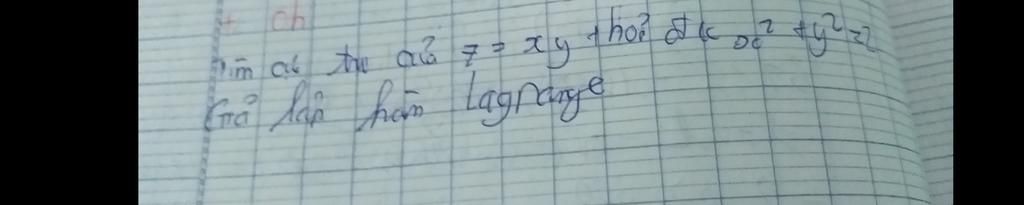 + ch
Tìm cực trị của z = xy thoả đk x² + y² = 2
Giả lập hàm Lagrange